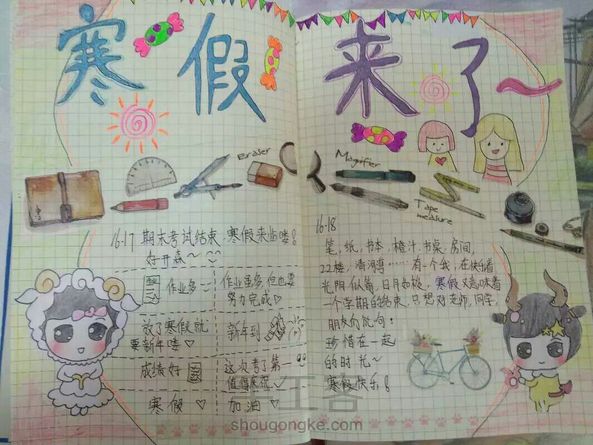 寒假来了~
Eraser
Magnifier
Tape
measure
16-17 期末考试结束,寒假来临喽!
好开森~
作业多
作业虽多,但也要
努力完成♡
放了寒假就
要新年喽
新年到
成绩好
这次考了第一
值得表扬
寒假♡
加油♡
16-18
笔,纸,书本,橙汁,书桌,房间,
22楼,清河湾……有一个我,在快乐着
光阴似箭,日月如梭,寒假又意味着
一个学期的结束,只想对老师,同学,
朋友们说句:
珍惜在一起
的时光~
寒假快乐!
shougongke.com